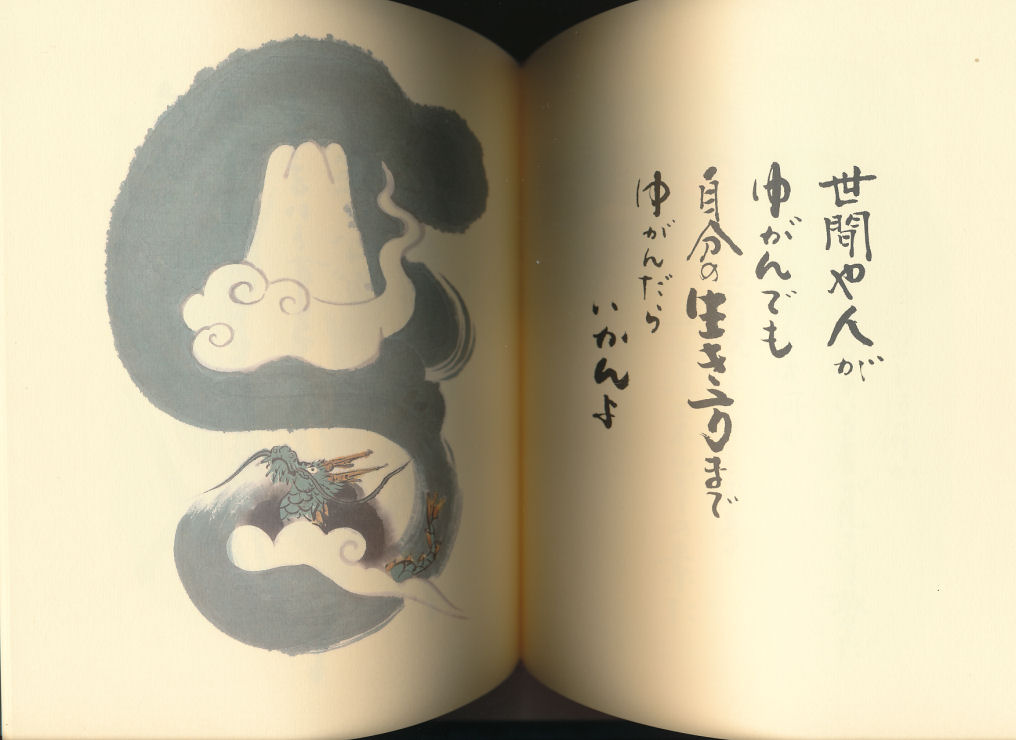 世間や人が
ゆがんでも
自分の生き方まで
ゆがんだら
いかんよ